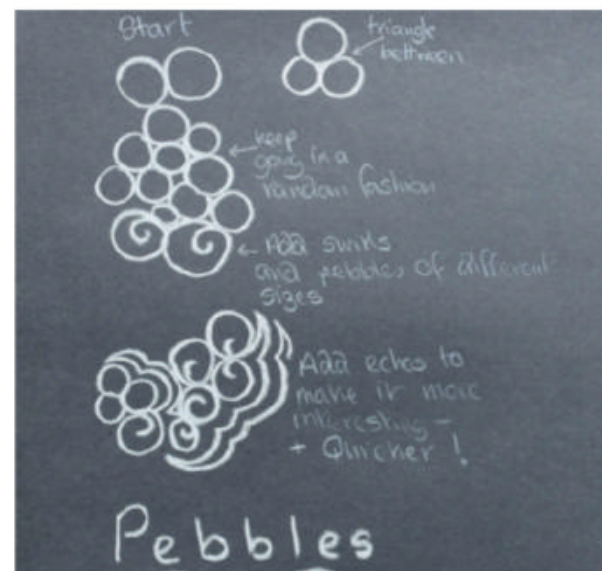 Start
triangle
between
keep
going in a
random fashion
Add swirls
and pebbles of different
sizes
Add echos to
make it more
interesting -
+ Quicker !
Pebbles